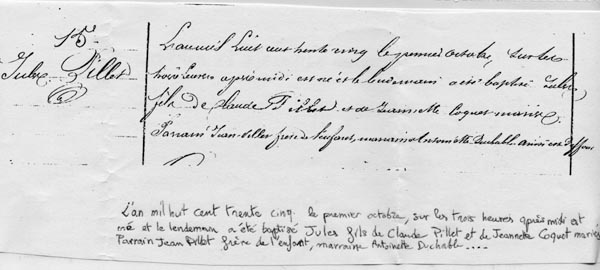 15
Jules Pillet
L'an mil huit cent trente cinq le premier octobre, sur les
trois heures après midi est né et le lendemain a été baptisé Jules,
fils de Claude Pillet et de Jeannette Coquet mariés,
Parrain Jean Pillet frère de l'enfant, marraine Antoinette Duchable
L'an mil huit cent trente cinq le premier octobre, sur les trois heures après midi est
né et le lendemain a été baptisé Jules fils de Claude Pillet et de Jeannette Coquet mariés
Parrain Jean Pillet frère de l'enfant, marraine Antoinette Duchable ....